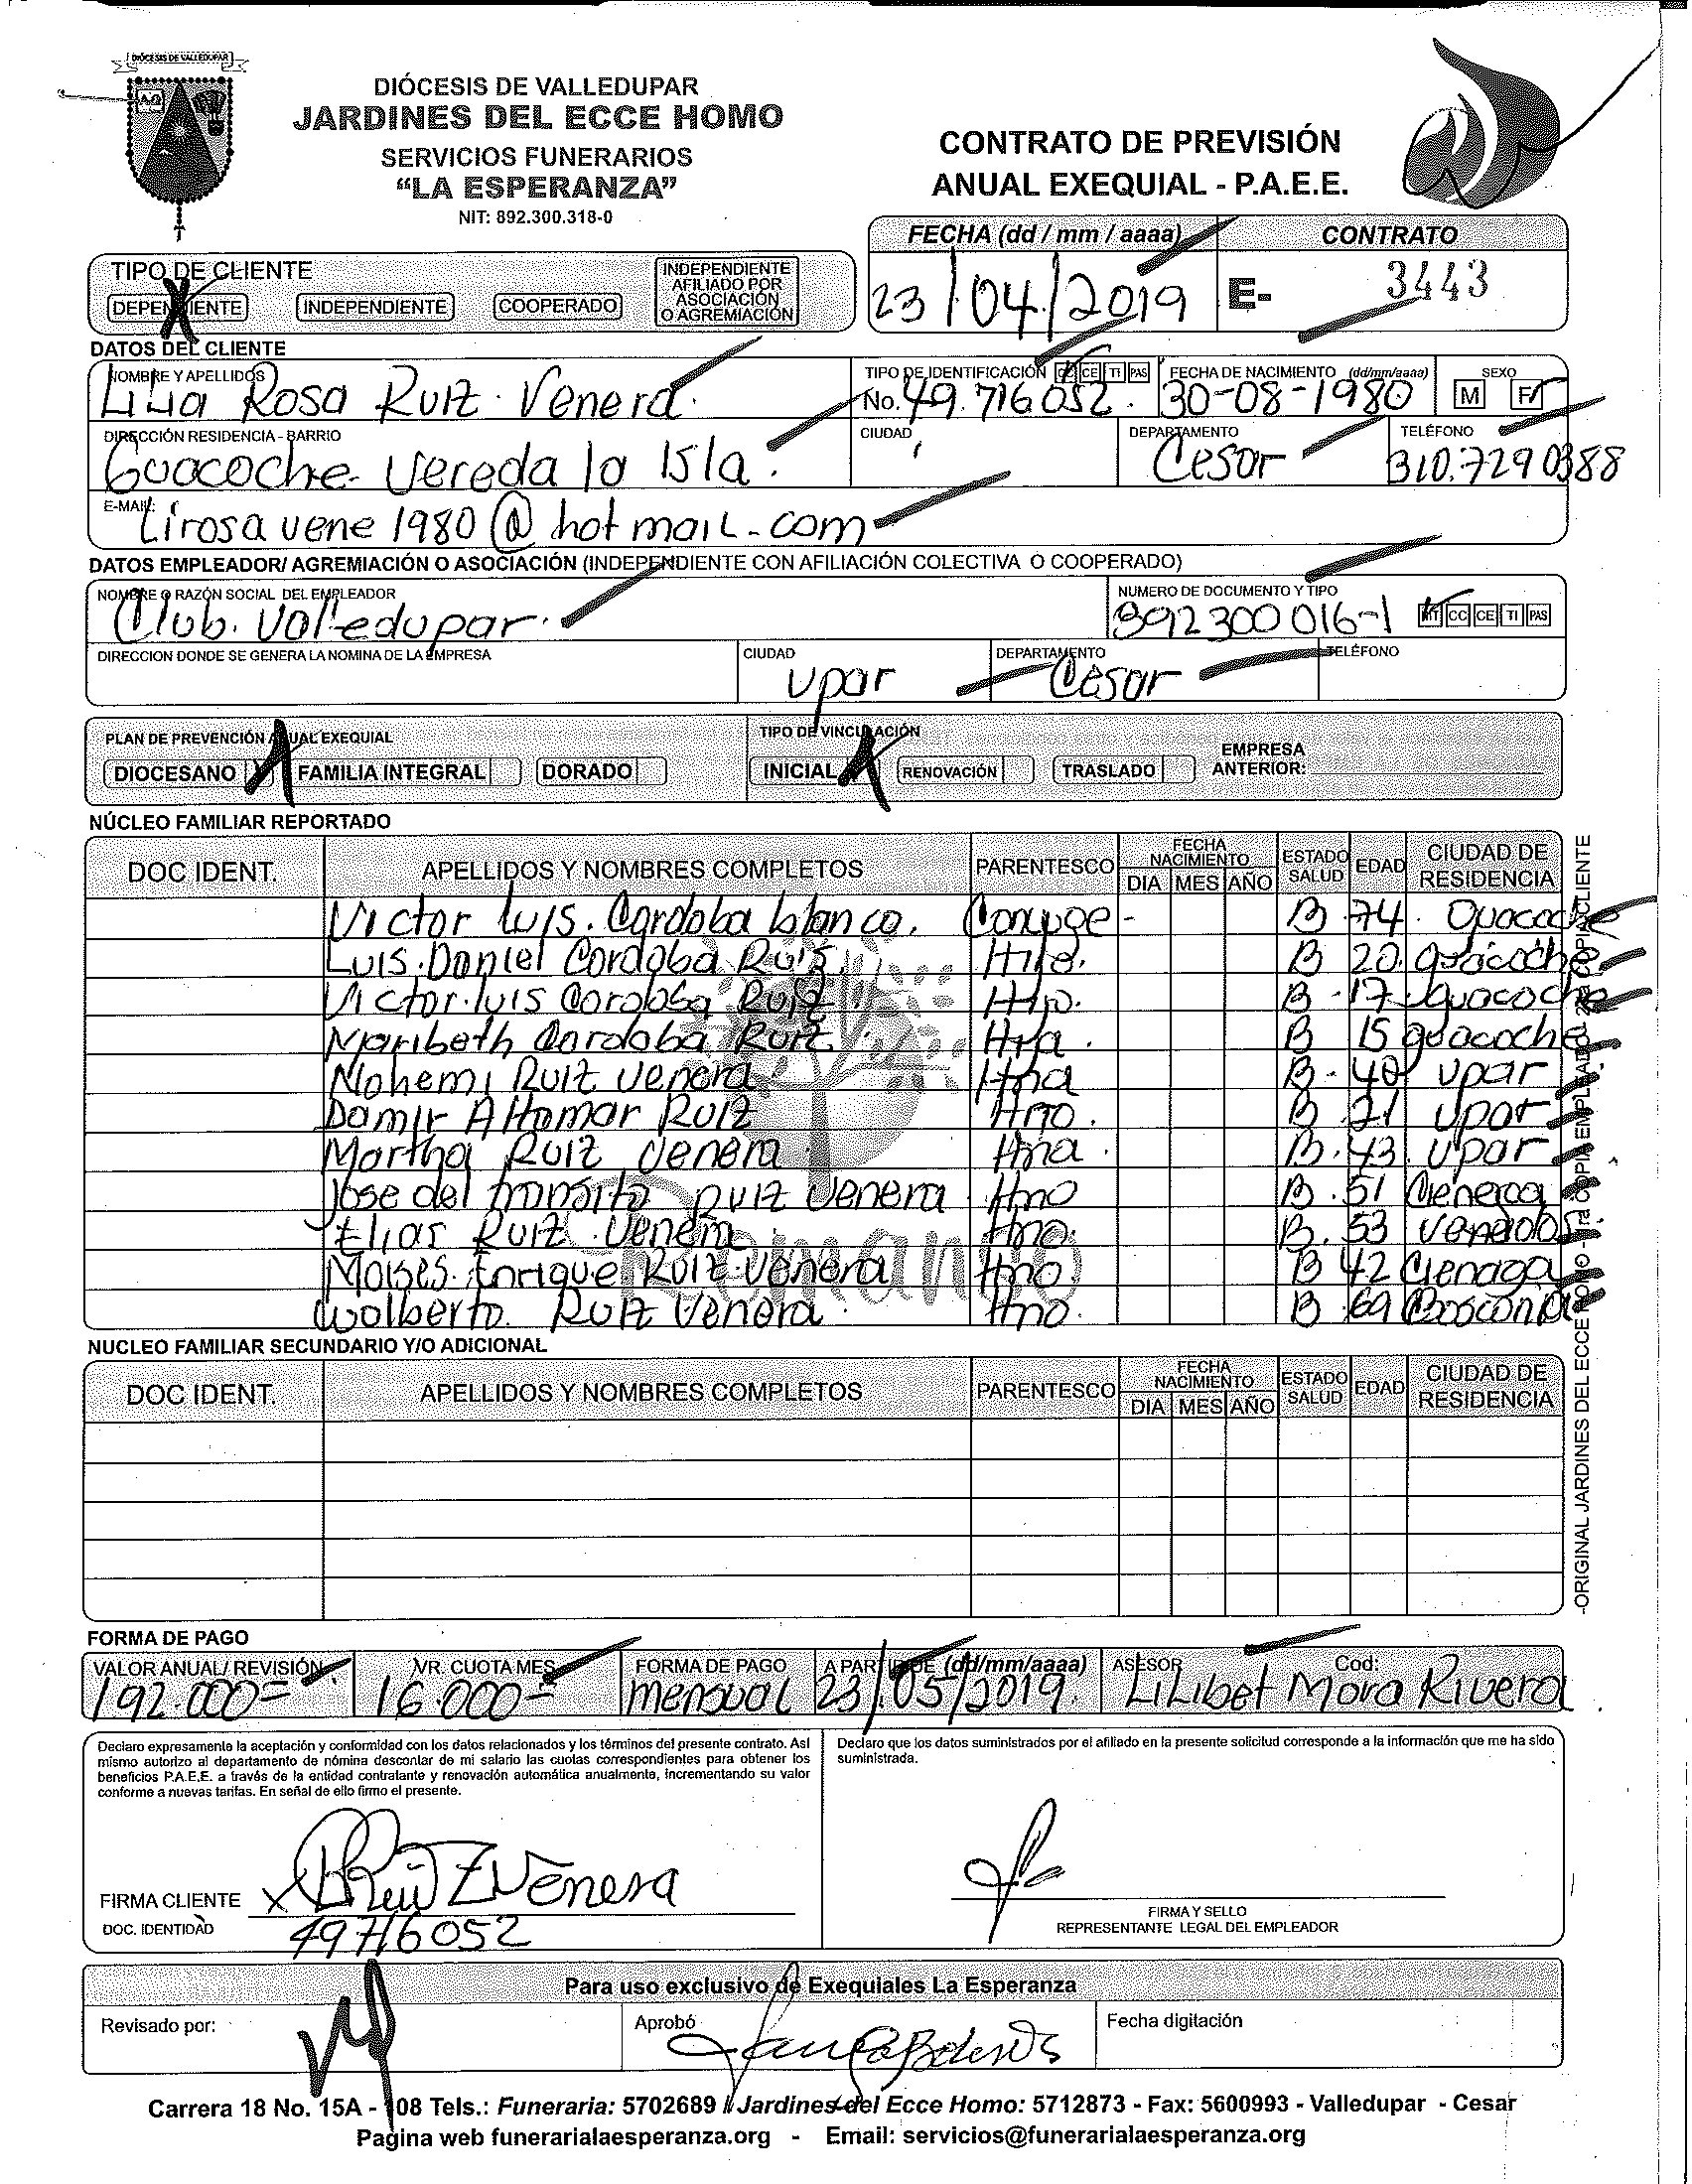 DIÓCESIS DE VALLEDUPAR
DIÓCESIS DE VALLEDUPAR
JARDINES DEL ECCE HOMO
SERVICIOS FUNERARIOS
“LA ESPERANZA”
NIT: 892.300.318-0
CONTRATO DE PREVISIÓN
ANUAL EXEQUIAL - P.A.E.E.
FECHA (dd / mm / aaaa) CONTRATO
23/04/2019 E- 3443
TIPO DE CLIENTE
DEPENDIENTE INDEPENDIENTE COOPERADO INDEPENDIENTE AFILIADO POR ASOCIACIÓN O AGREMIACIÓN
DATOS DEL CLIENTE
NOMBRE Y APELLIDOS TIPO DE IDENTIFICACIÓN CC CE TI PAS FECHA DE NACIMIENTO (dd/mm/aaaa) SEXO
Lilia Rosa Ruiz Venera No. 49.716052 30-08-1980 M F
DIRECCIÓN RESIDENCIA - BARRIO CIUDAD DEPARTAMENTO TELÉFONO
Guacoche vereda la Isla. Cesar 310.7290388
E-MAIL:
Lirosavene1980@hotmail.com
DATOS EMPLEADOR/ AGREMIACIÓN O ASOCIACIÓN (INDEPENDIENTE CON AFILIACIÓN COLECTIVA O COOPERADO)
NOMBRE O RAZÓN SOCIAL DEL EMPLEADOR NUMERO DE DOCUMENTO Y TIPO
Club. Valledupar. 892300016-1 NIT CC CE TI PAS
DIRECCION DONDE SE GENERA LA NOMINA DE LA EMPRESA CIUDAD DEPARTAMENTO TELÉFONO
Vpar Cesar
PLAN DE PREVENCIÓN ANUAL EXEQUIAL TIPO DE VINCULACIÓN
DIOCESANO FAMILIA INTEGRAL DORADO INICIAL RENOVACIÓN TRASLADO EMPRESA ANTERIOR:
NÚCLEO FAMILIAR REPORTADO
DOC IDENT. APELLIDOS Y NOMBRES COMPLETOS PARENTESCO FECHA NACIMIENTO DIA MES AÑO ESTADO SALUD EDAD CIUDAD DE RESIDENCIA
Victor Luis. Cordoba blanco. Conyuge - B 74. Guacoche
Luis. Daniel Cordoba Ruiz Hijo. B 20. guacoche
Victor. luis Cordoba Ruiz Hijo. B - 17 - guacoche
Maribeth Cordoba Ruiz Hija. B 15 guacoche
Nohemi Ruiz Venera Hna B - 40 Vpar
Damir Altamar Ruiz Hno. B 21 Vpar
Martha Ruiz Venera Hna. B. 43. Vpar
Jose del transito Ruiz Venera Hno B. 51
Elias Ruiz. Venera Hno. B. 53
Moises. Enrique Ruiz Venera Hno. B 42 Cienaga
Walberto. Ruiz Venera. Hno. B 69 Bosconia
NUCLEO FAMILIAR SECUNDARIO Y/O ADICIONAL
DOC IDENT. APELLIDOS Y NOMBRES COMPLETOS PARENTESCO FECHA NACIMIENTO DIA MES AÑO ESTADO SALUD EDAD CIUDAD DE RESIDENCIA
FORMA DE PAGO
VALOR ANUAL/ REVISIÓN VR. CUOTA MES FORMA DE PAGO A PARTIR DE (dd/mm/aaaa) ASESOR Cod:
192.000= 16.000= mensual 23/05/2019. Lilibet Mora Rivera
Declaro expresamente la aceptación y conformidad con los datos relacionados y los términos del presente contrato. Así
mismo autorizo al departamento de nómina descontar de mi salario las cuotas correspondientes para obtener los
beneficios P.A.E.E. a través de la entidad contratante y renovación automática anualmente, incrementando su valor
conforme a nuevas tarifas. En señal de ello firmo el presente.
Declaro que los datos suministrados por el afiliado en la presente solicitud corresponde a la información que me ha sido
suministrada.
FIRMA CLIENTE Ruiz Venera
DOC. IDENTIDAD 49716052
FIRMA Y SELLO
REPRESENTANTE LEGAL DEL EMPLEADOR
Para uso exclusivo de Exequiales La Esperanza
Revisado por: Aprobó Fecha digitación
Carrera 18 No. 15A - 108 Tels.: Funeraria: 5702689 // Jardines del Ecce Homo: 5712873 - Fax: 5600993 - Valledupar - Cesar
Pagina web funerarialaesperanza.org - Email: servicios@funerarialaesperanza.org